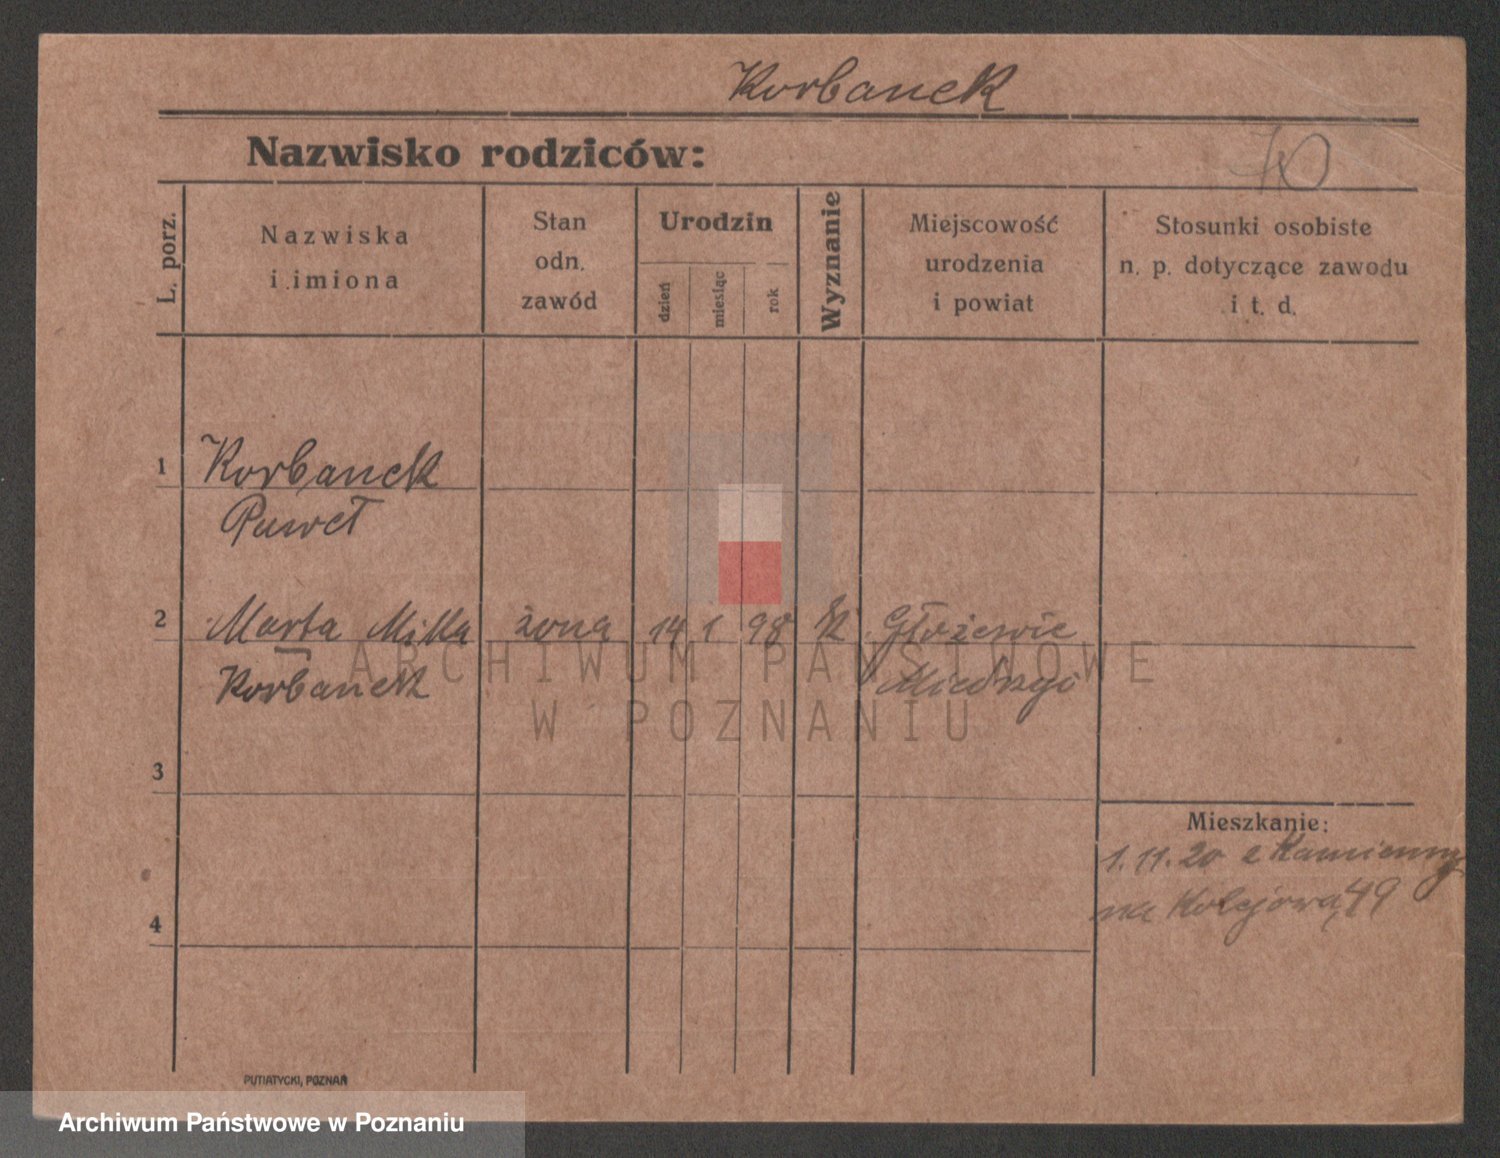 Korbanek
Nazwisko rodziców:
70
L. porz.
Nazwiska
i imiona
Stan
odn.
zawód
Urodzin
dzień
miesiąc
rok
Wyznanie
Miejscowość
urodzenia
i powiat
Stosunki osobiste
n. p. dotyczące zawodu
i t. d.
1
Korbanek
Paweł
2
Marta Mikka żona 14 1 98 k Głożewie
Korbanek
ARCHIWUM PAŃSTWOWE
W POZNANIU
3
Mieszkanie:
1.11.20 z Kamiennej
na Kolejową 49
4
PUTIATYCKI, POZNAŃ
Archiwum Państwowe w Poznaniu